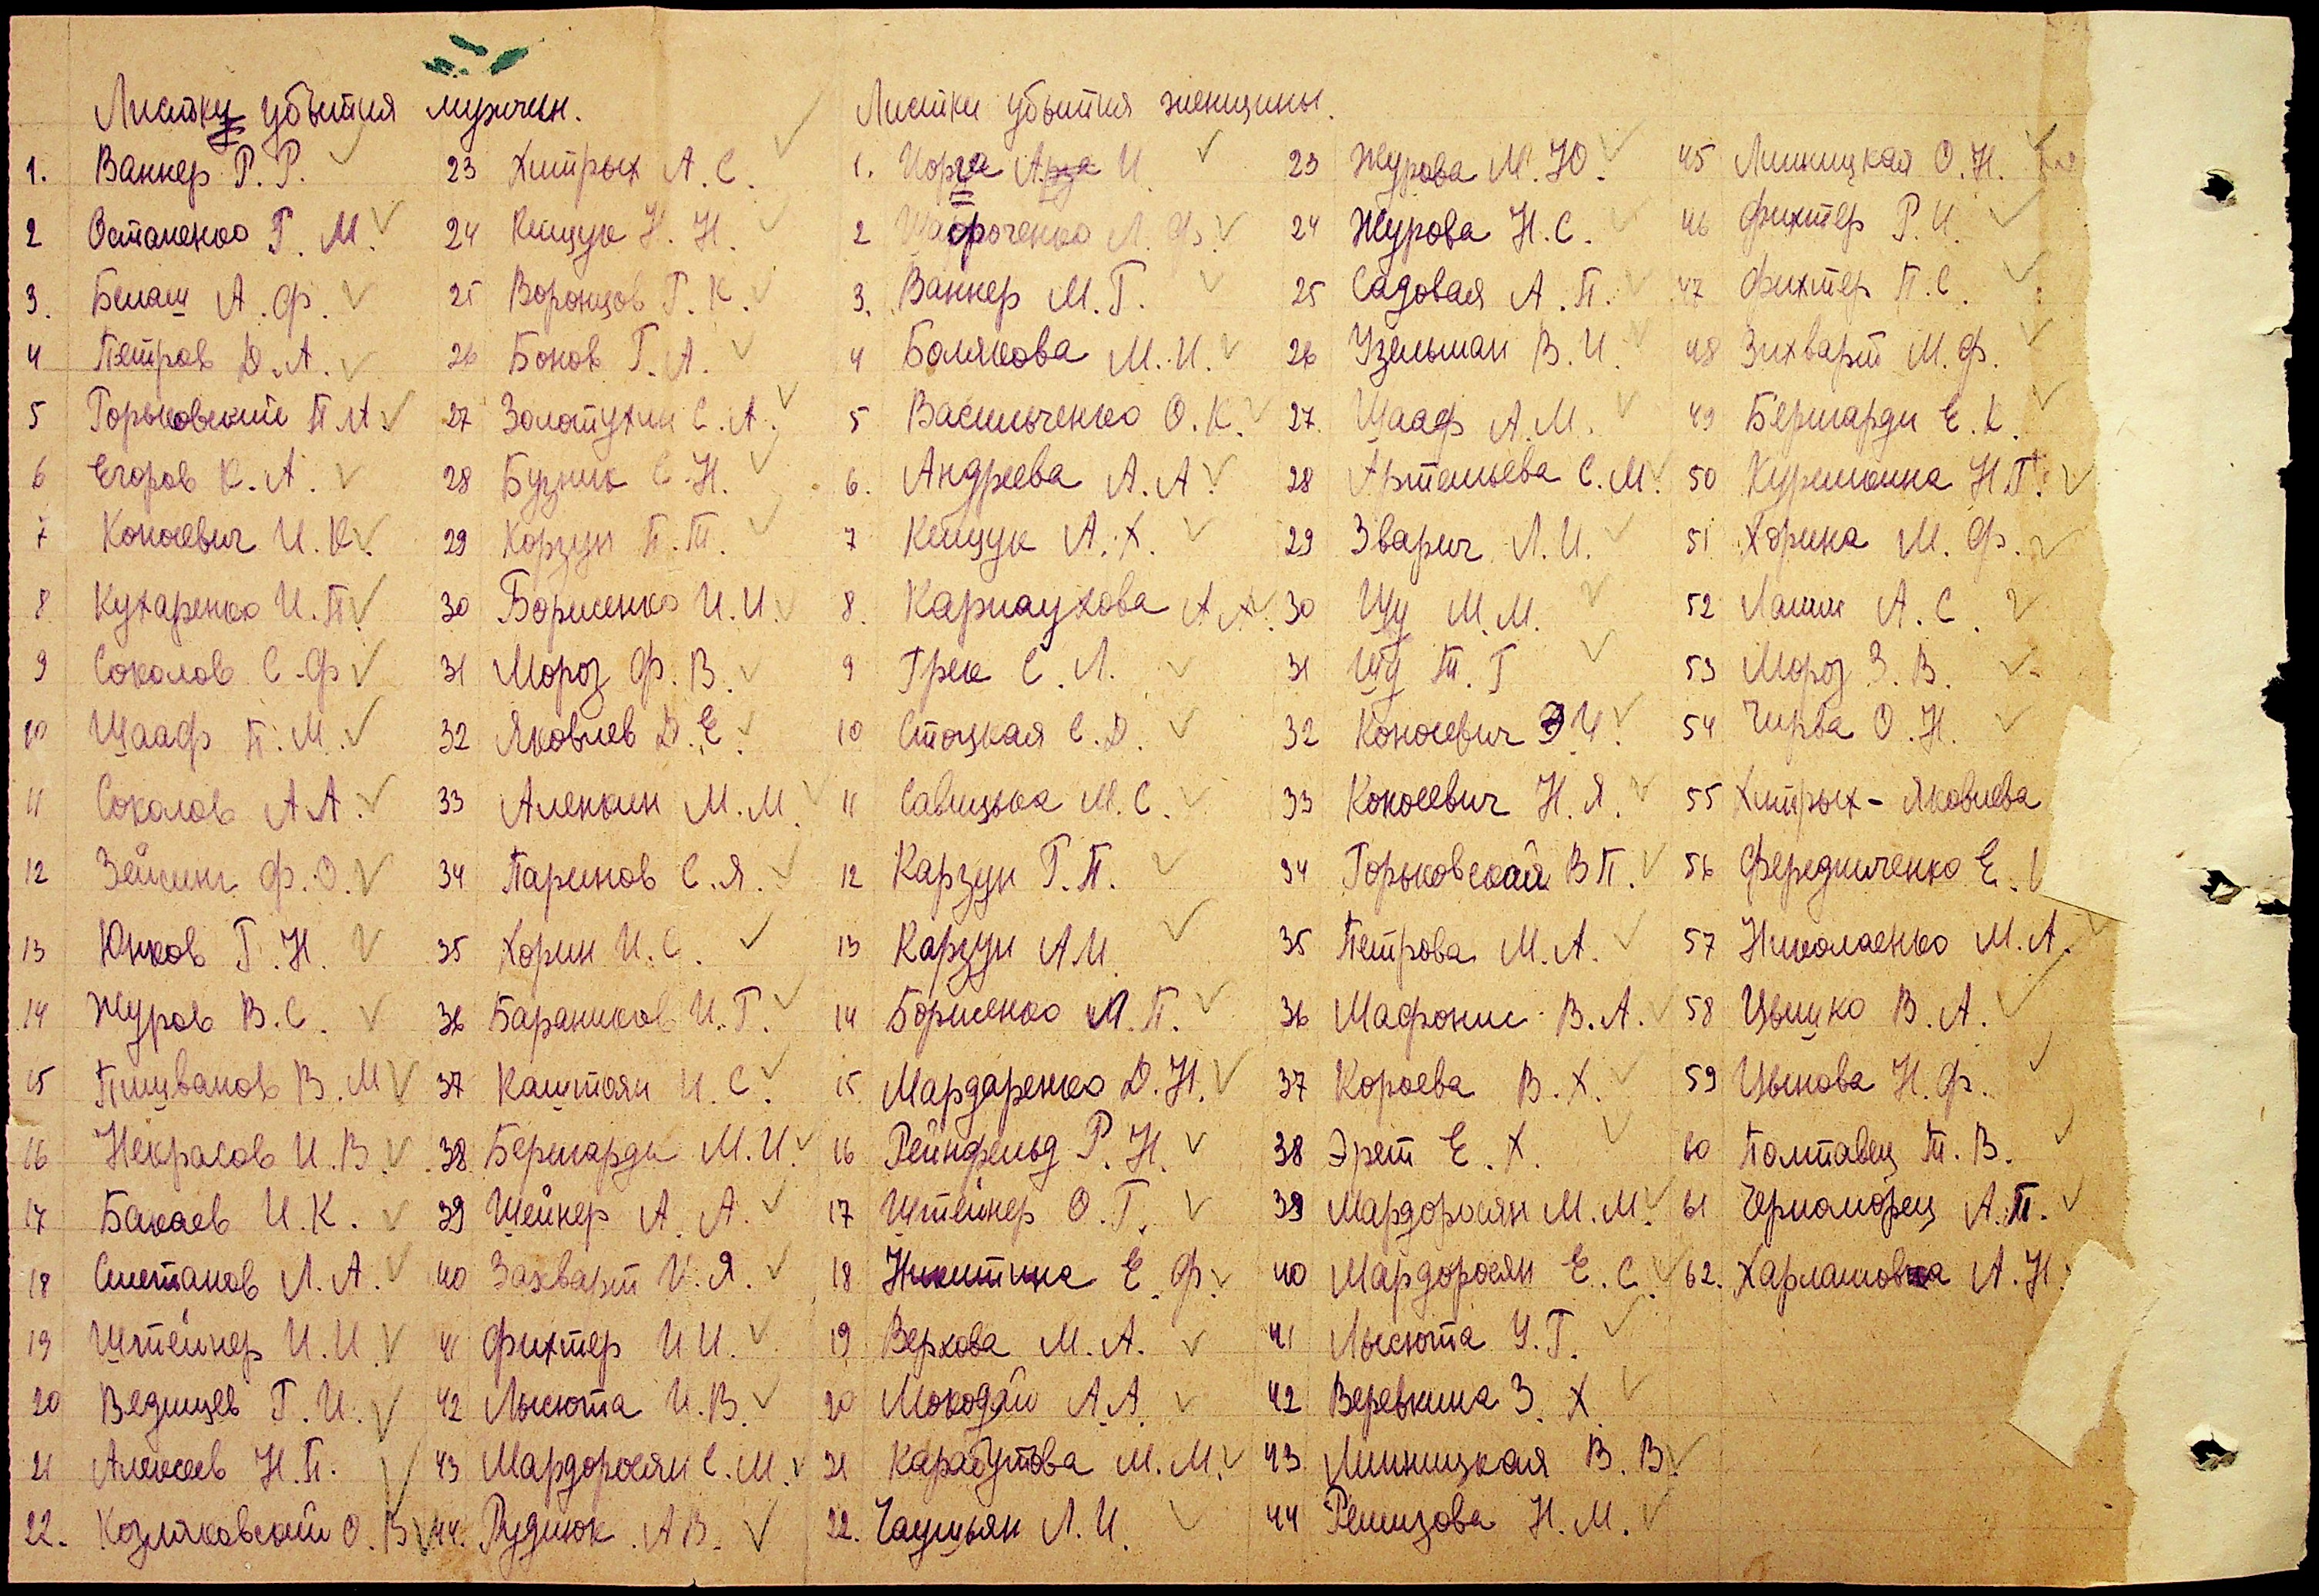 Листки убытия мужчин.
1. Ваннер Р. Р.
2 Остапенко Г. М.
3. Белаш А. Ф.
4 Петров Д. А.
5 Горьковский П. А.
6 Егоров К. А.
7 Коносевич И. К.
8 Кухаренко И. П.
9 Соколов С. Ф.
10 Шааф П. М.
11 Соколов А. А.
12 Ф. О.
13 Юнков Г. Н.
14 Журов В. С.
15 Пишванов В. М
16 Некрасов И. В.
17 Бакаев И. К.
18 Сметанов Л. А.
19 Штейнер И. И.
20 Ведищев Г. И.
21 Алексеев Н. П.
22. Козляковский О. В
23 Хитрых А. С.
24 Кищук Н. Н.
25 Воронцов Г. К.
26 Боков Г. А.
27 Золотухин С. А.
28 Бузник С. Н.
29 Корзун П. Т.
30 Борисенко И. И.
31 Мороз Ф. В.
32 Яковлев Д. Е.
33 Аленкин М. М.
34 Паринов С. Я.
35 Хорин И. С.
36 Бараников И. Г.
37 Каштоян И. С.
38 Бернарди М. И.
39 Шейнер А. А.
40 Захварт И. Я.
41 Фихтер И И.
42 Лысюта И. В.
43 Мардоросян С. М.
44. Руднюк А В.
Листки убытия женщины.
1. Иорга И.
2 Л. Ф.
3. Ваннер М. Г.
4 Болякова М. И.
5 Васильченко О. К.
6. Андреева А. А.
7 Кищук А. Х.
8. Карнаухова А. А.
9 Грек С. Л.
10 Стоцкая С. Д.
11 Савицька М. С.
12 Карзун Г. П.
13 Карзун А И.
14 Борисенко М. П.
15 Мардаренко Д. Н.
16 Рейнфельд Р. Н.
17 Штейнер О. Г.
18 Никитина Е. Ф.
19 Верхова М. А.
20 Мокодай А. А.
21 Карабутова М. М.
22. Чаушьян Л. И.
23 Журова М. Ю.
24 Журова Н. С.
25 Садовая А. П.
26 Узельман В. И.
27. Шааф А. М.
28 Артемьева С. М.
29 Зварич Л. И.
30 М. М.
31 Т. Г
32 Коносевич Э И.
33 Коносевич Н. Я.
34 Горьковская В П.
35 Петрова М. А.
36 Мафонис В. А.
37 Короева В. Х.
38 Эрет Е. Х.
39 Мардоросян М. М.
40 Мардоросян Е. С.
41 Лысюта У. Г.
42 Веревкина З. Х.
43 Линницкая В. В.
44 Ремизова Н. М.
45 Линницкая О. Н.
46 Фихтер Р. И.
47 Фихтер П. С.
48 Зихварт М. Ф.
49 Бернарди Е. К.
50 Н П.
51 Хорина М. Ф.
52 А. С.
53 Мороз З. В.
54 Чирва О. Н.
55 Хитрых - Яковлева
56 Е.
57 Николаенко М. А.
58 В. А.
59 Н. Ф.
60 Полтавец Т. В.
61 Черноморец А. П.
62. А. Н.